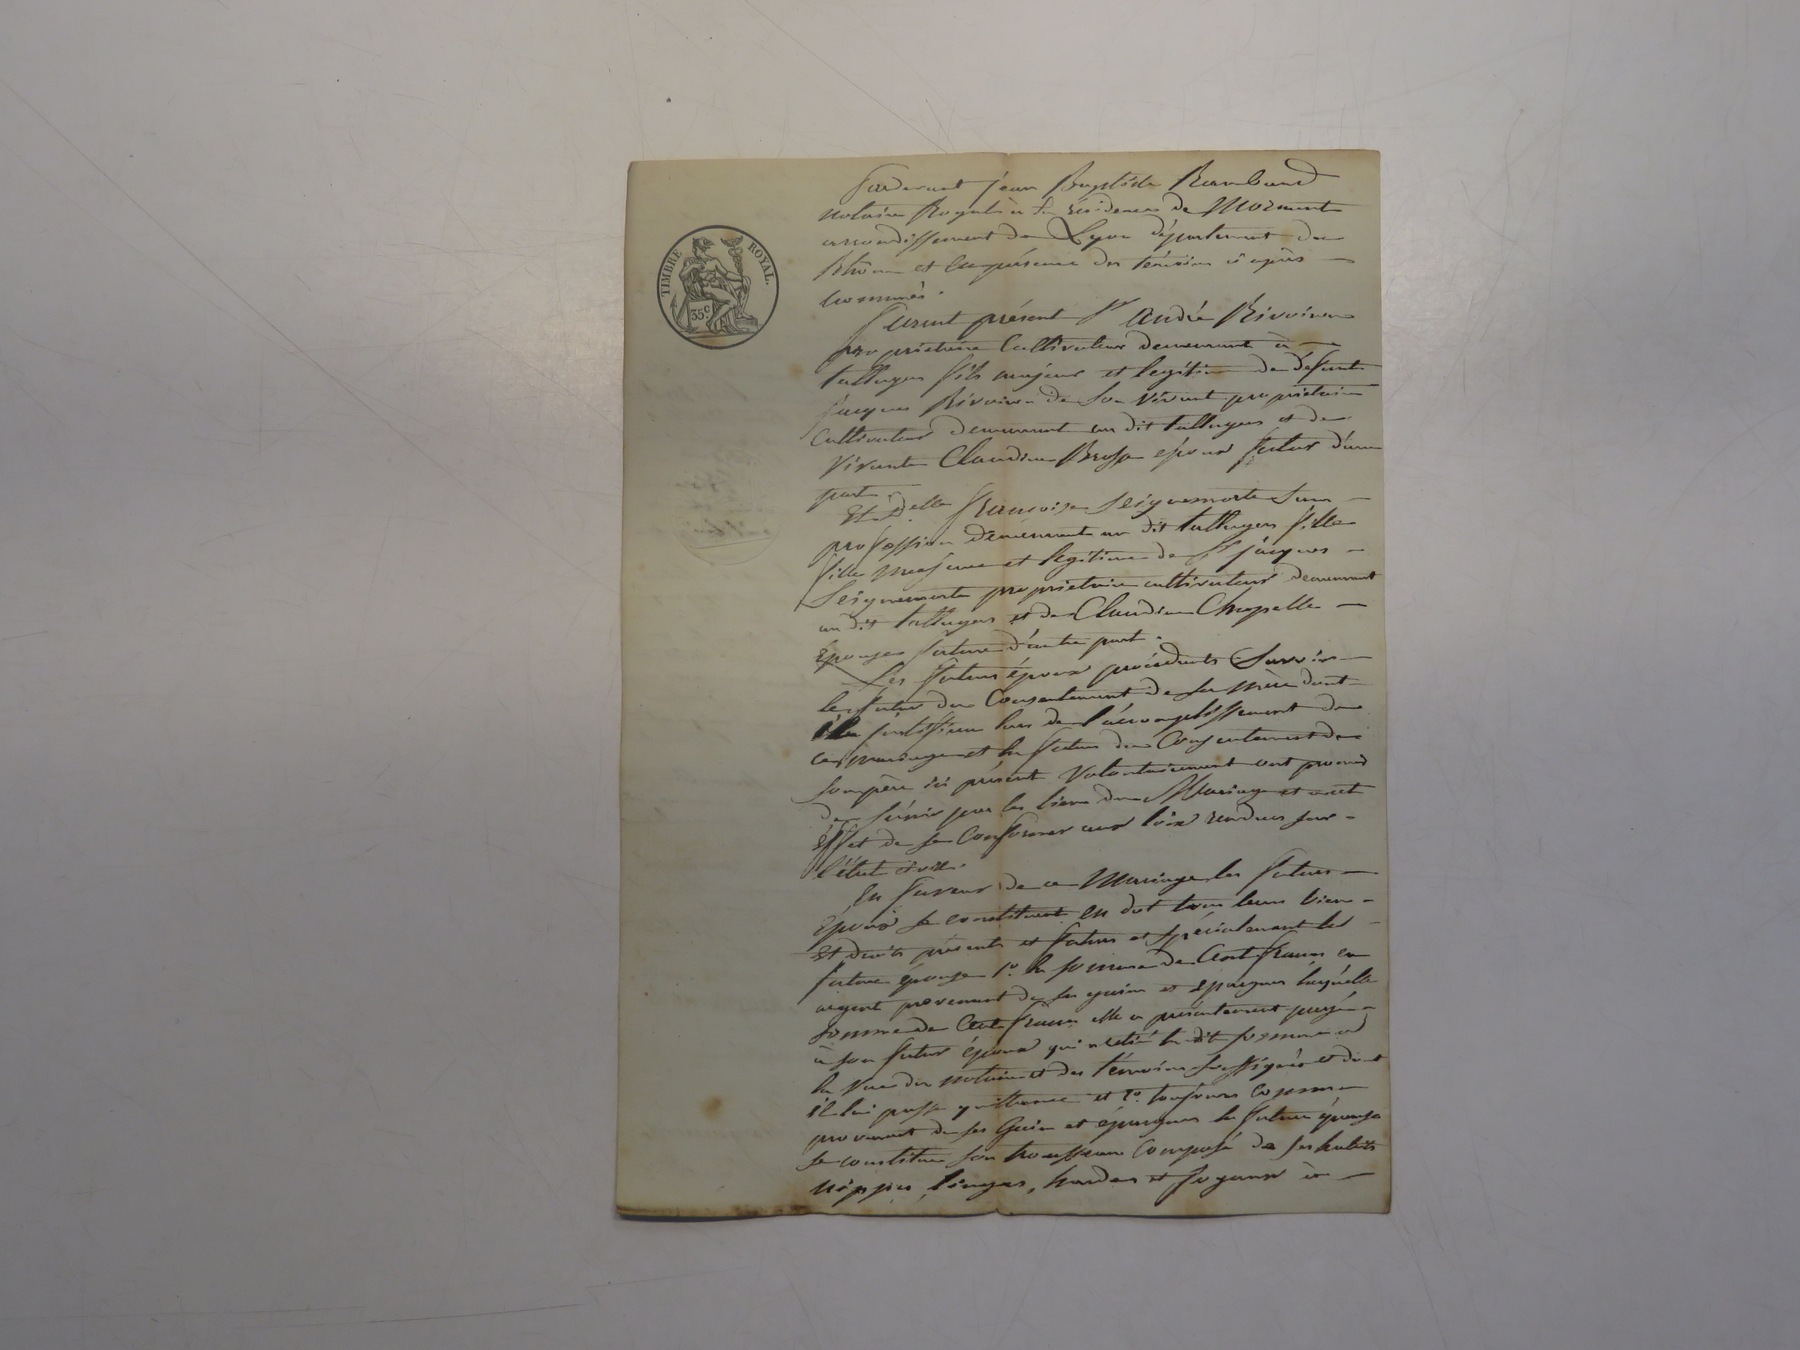 TIMBRE ROYAL.
35c.
Pardevant jean Baptiste Rambaud
notaire Royal à la résidence de Mornant
arrondissement de Lyon département du
Rhône et en présence des témoins ci après
nommés.
furent présent Sr André Rivoire
propriétaire Cultivateur demeurant à
talluyers fils majeur et legitime de défunt
jacques Rivoire de son vivant propriétaire
Cultivateur demeurant au dit talluyers et de
vivante Claudine Brosse époux futur d'une
part.
Et Delle françoise Seignemorte sans
profession demeurant au dit talluyers fille
fille majeure et legitime de Sr jacques
Seignemorte propriétaire cultivateur demeurant
au dit talluyers et de Claudine Chapelle
Epouse future d'autre part.
Les futurs époux procédants Savoir
le futur du Consentement de sa mère dont
il justifiera lors de l'accomplissement de
ce mariage et la future du Consentement de
son père ici présent volontairement ont promis
de s'unir par les liens du Mariage et à cet
Effet de se Conformer aux loix rendues sur
l'état civil.
En faveur de ce Mariage les futurs
Epoux se constituent en dot tous leurs biens
et droits présents et futurs et spécialement la
future épouse 1o. la somme de Cent francs en
argent provenant de ses gains et épargnes laquelle
somme de Cent francs elle a présentement payé
à son futur époux qui a retiré la dit somme à
la vue du notaire et des témoins soussignés et dont
il lui passe quittance et 2o. toujours comme
provenant de ses Gains et épargnes la future épouse
se constitue son trousseau Composé de ses habits
nippes, linges, hardes et joyaux à